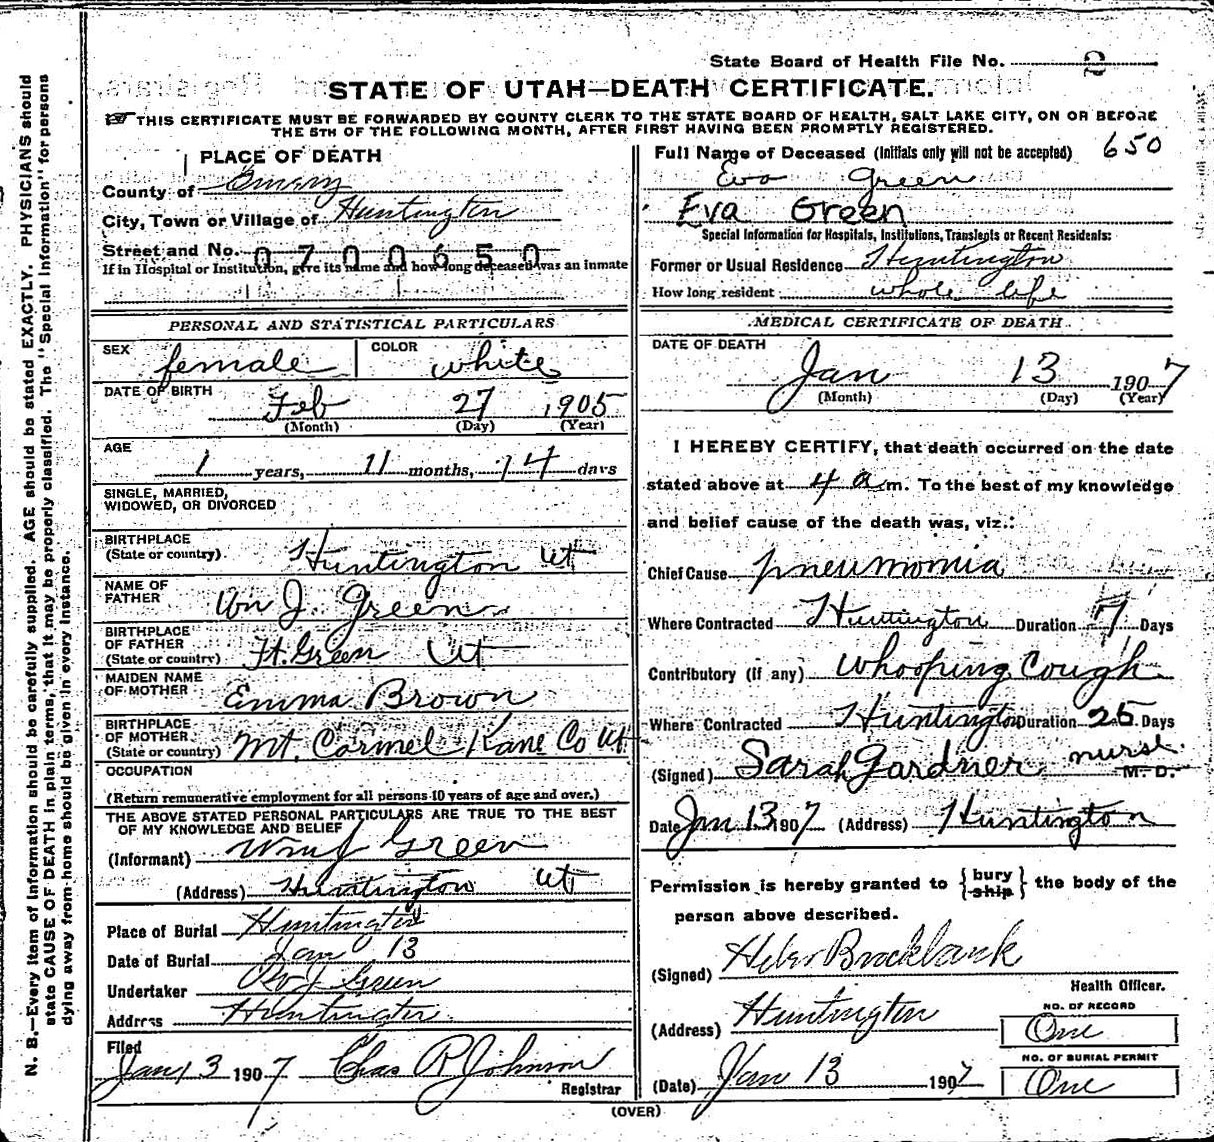 State Board of Health File No. 2
STATE OF UTAH—DEATH CERTIFICATE.
THIS CERTIFICATE MUST BE FORWARDED BY COUNTY CLERK TO THE STATE BOARD OF HEALTH, SALT LAKE CITY, ON OR BEFORE
THE 5TH OF THE FOLLOWING MONTH, AFTER FIRST HAVING BEEN PROMPTLY REGISTERED.
PLACE OF DEATH
County of Emery
City, Town or Village of Huntington
Street and No. 0700650
If in Hospital or Institution, give its name and how long deceased was an inmate
PERSONAL AND STATISTICAL PARTICULARS
SEX female COLOR white
DATE OF BIRTH Feb 27 1905
(Month) (Day) (Year)
AGE
1 years, 11 months, 14 days
SINGLE, MARRIED,
WIDOWED, OR DIVORCED
BIRTHPLACE
(State or country) Huntington Ut
NAME OF
FATHER Wm J. Green
BIRTHPLACE
OF FATHER
(State or country) Ft. Green Ut
MAIDEN NAME
OF MOTHER Emma Brown
BIRTHPLACE
OF MOTHER
(State or country) Mt. Carmel Kane Co Ut
OCCUPATION
(Return remunerative employment for all persons 10 years of age and over.)
THE ABOVE STATED PERSONAL PARTICULARS ARE TRUE TO THE BEST
OF MY KNOWLEDGE AND BELIEF
(Informant) Wm J Green
(Address) Huntington Ut
Place of Burial Huntington
Date of Burial Jan 13
Undertaker J Green
Address Huntington
Filed
Jany 13 1907 Chas R Johnson
Registrar
650
Full Name of Deceased (Initials only will not be accepted)
Eva Green
Eva Green
Special Information for Hospitals, Institutions, Transients or Recent Residents:
Former or Usual Residence Huntington
How long resident whole life
MEDICAL CERTIFICATE OF DEATH
DATE OF DEATH
Jan 13 1907
(Month) (Day) (Year)
I HEREBY CERTIFY, that death occurred on the date
stated above at 4 a m. To the best of my knowledge
and belief cause of the death was, viz.:
Chief Cause pneumonia
Where Contracted Huntington Duration 7 Days
Contributory (if any) whooping Cough
Where Contracted Huntington Duration 25 Days
(Signed) Sarah Gardner nurse M. D.
Date Jan 13 1907 (Address) Huntington
Permission is hereby granted to {bury ship} the body of the
person above described.
(Signed) Heber Brockbank
Health Officer.
(Address) Huntington
NO. OF RECORD
One
(Date) Jan 13 1907
NO. OF BURIAL PERMIT
One
(OVER)
N. B.—Every item of information should be carefully supplied. AGE should be stated EXACTLY. PHYSICIANS should
state CAUSE OF DEATH in plain terms, that it may be properly classified. The "Special Information" for persons
dying away from home should be given in every instance.